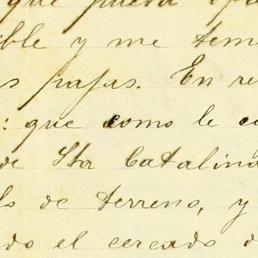 que pueda
ible y me tem
s pajas. En re
: que como le c
de Sta Catalina
lo de terreno, y
do el cercado d